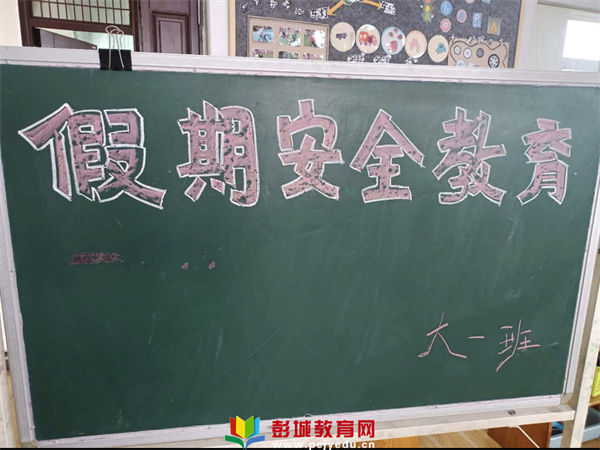 假期安全教育
大一班
彭城教育网
www.pcjyedu.cn